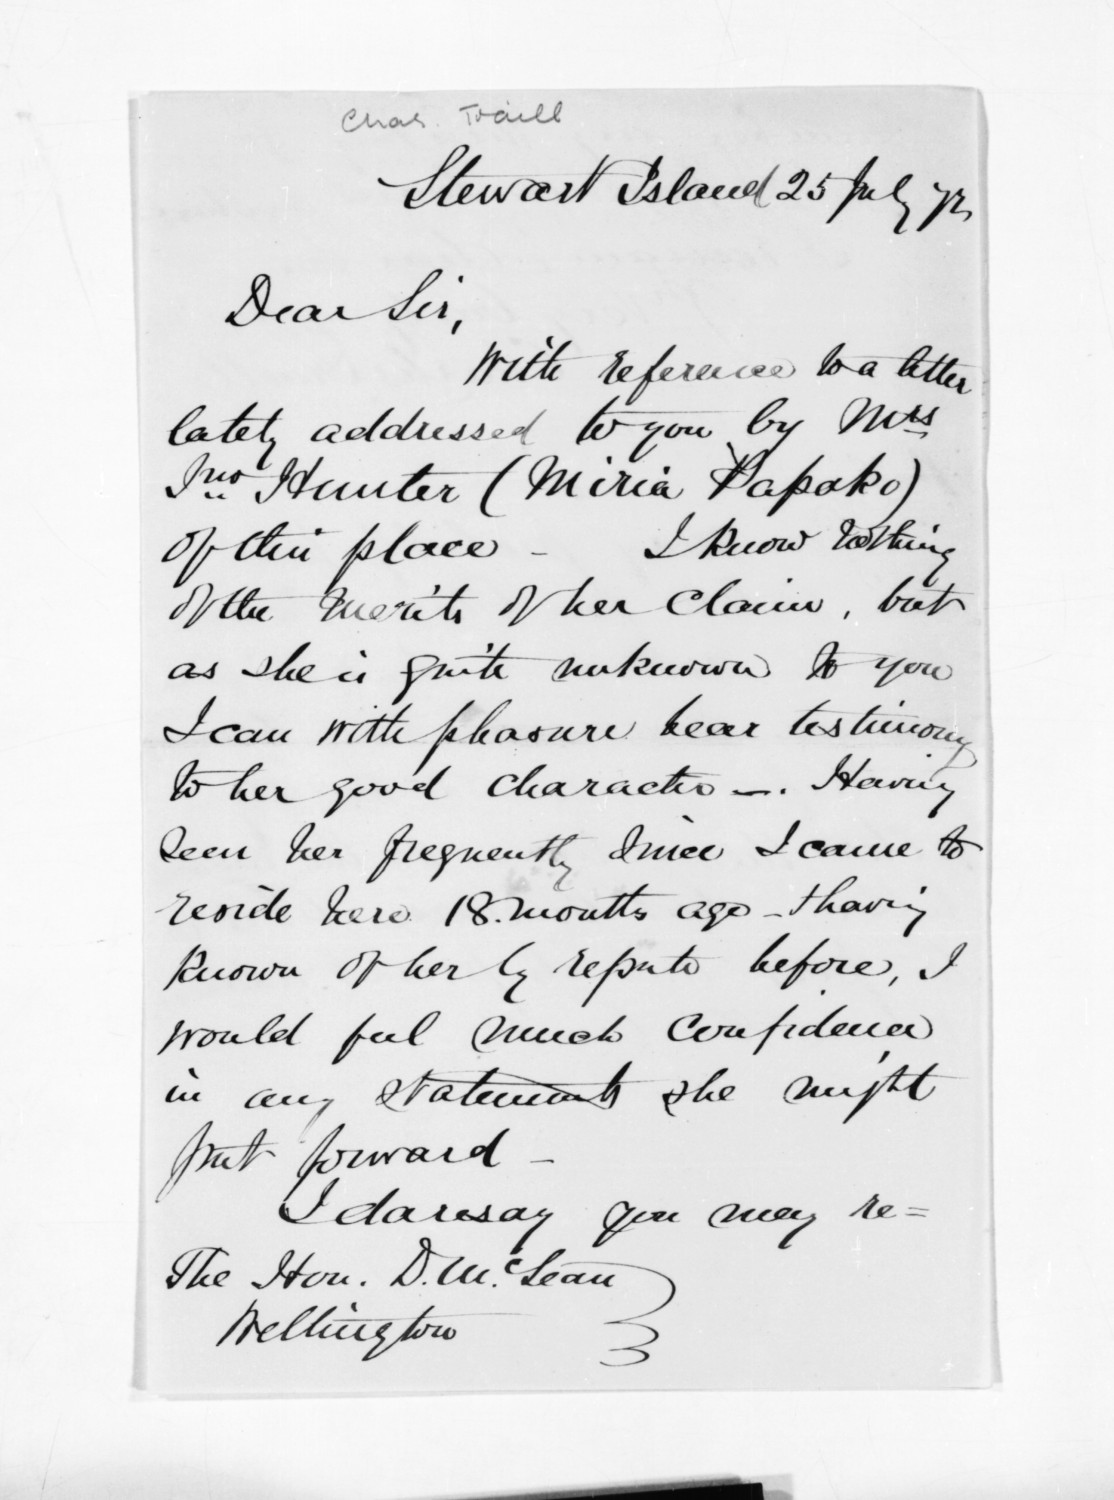 Chas. Traill
Stewart Island 25 July 72
Dear Sir,
With reference to a letter
lately addressed to you by Mrs
Jno Hunter (Miria Papako)
of this place - I know nothing
of the merits of her claim, but
as she is quite unknown to you
I can with pleasure bear testimony
to her good character -. Having
seen her frequently since I came to
reside here 18 months ago - & having
known of her by repute before, I
would feel much confidence
in any statements she might
put forward -
I daresay you may re=
The Hon. D. McLean
Wellington